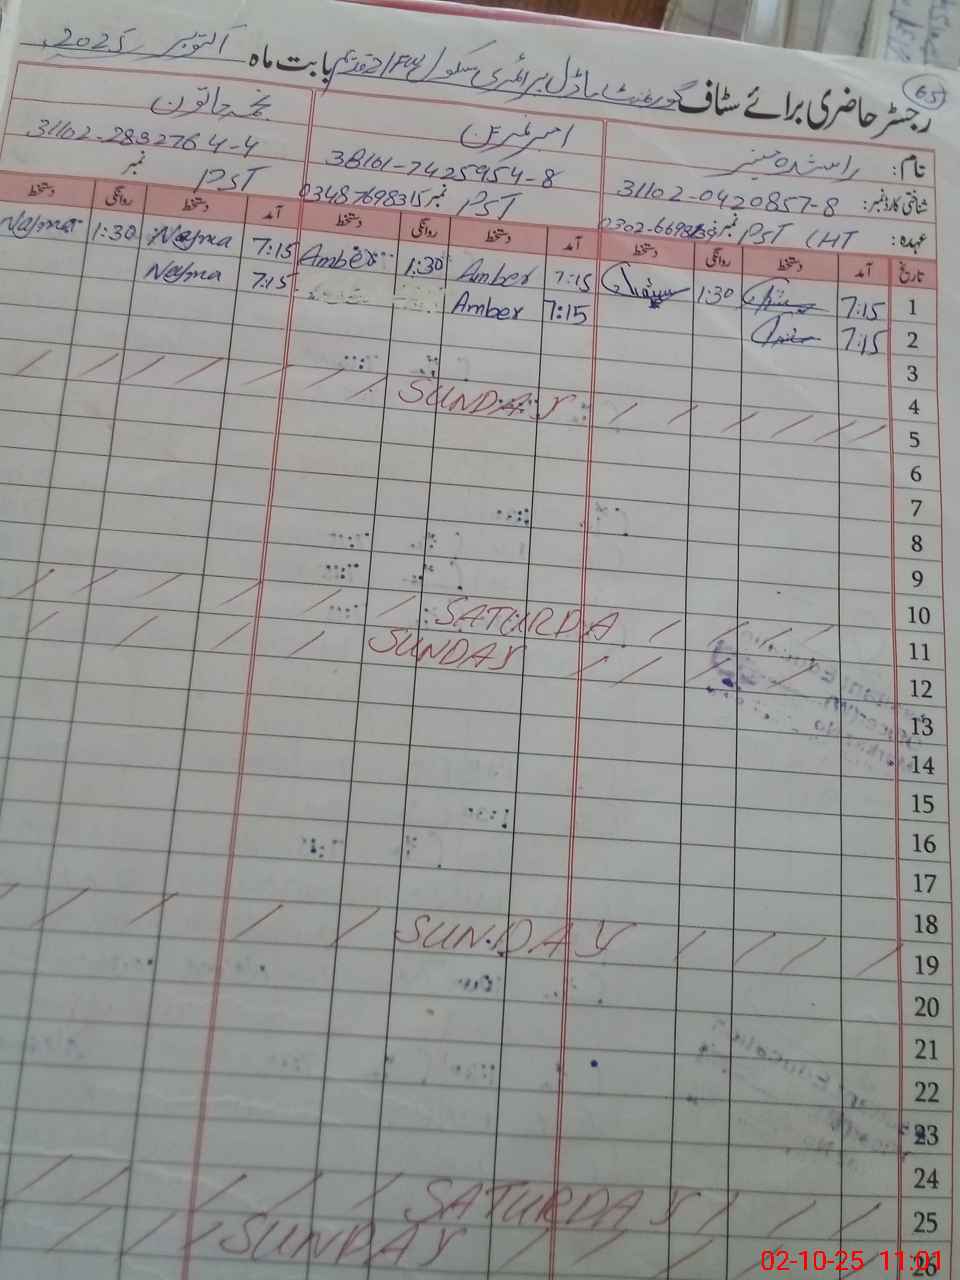 65
رجسٹر حاضری برائے سٹاف گورنمنٹ ماڈل پرائمری سکول بابت ماہ اکتوبر 2025
نام:
شناختی کارڈ نمبر: 31102-0420857-8 38101-7425954-8 31102-2832764-4
عہدہ: PST (HT نمبر PST 03487698315 نمبر PST نمبر
تاریخ آمد دستخط روانگی دستخط آمد دستخط روانگی دستخط آمد دستخط روانگی دستخط
1 7:15 1:30 7:15 Amber 1:30 Amber 7:15 Najma 1:30 Najma
2 7:15 7:15 Amber 7:15 Najma
3
4
SUNDAY
5
6
7
8
9
10
SATURDA
11
SUNDAY
12
13
14
15
16
17
18
SUNDAY
19
20
21
22
23
24
SATURDAY
25
SUNDAY
26
02-10-25 11:01